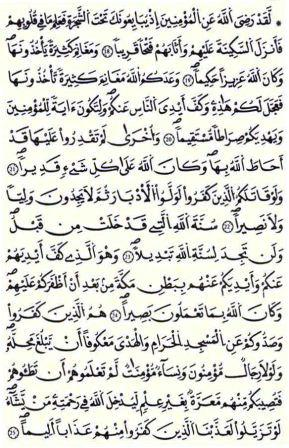 ۞ لَّقَدْ رَضِيَ ٱللَّهُ عَنِ ٱلْمُؤْمِنِينَ إِذْ يُبَايِعُونَكَ تَحْتَ ٱلشَّجَرَةِ فَعَلِمَ مَا فِي قُلُوبِهِمْ
فَأَنزَلَ ٱلسَّكِينَةَ عَلَيْهِمْ وَأَثَابَهُمْ فَتْحًا قَرِيبًا ١٨ وَمَغَانِمَ كَثِيرَةً يَأْخُذُونَهَا
وَكَانَ ٱللَّهُ عَزِيزًا حَكِيمًا ١٩ وَعَدَكُمُ ٱللَّهُ مَغَانِمَ كَثِيرَةً تَأْخُذُونَهَا
فَعَجَّلَ لَكُمْ هَٰذِهِۦ وَكَفَّ أَيْدِيَ ٱلنَّاسِ عَنكُمْ وَلِتَكُونَ ءَايَةً لِّلْمُؤْمِنِينَ
وَيَهْدِيَكُمْ صِرَٰطًا مُّسْتَقِيمًا ٢٠ وَأُخْرَىٰ لَمْ تَقْدِرُوا۟ عَلَيْهَا قَدْ
أَحَاطَ ٱللَّهُ بِهَا وَكَانَ ٱللَّهُ عَلَىٰ كُلِّ شَيْءٍ قَدِيرًا ٢١
وَلَوْ قَٰتَلَكُمُ ٱلَّذِينَ كَفَرُوا۟ لَوَلَّوُا۟ ٱلْأَدْبَٰرَ ثُمَّ لَا يَجِدُونَ وَلِيًّا
وَلَا نَصِيرًا ٢٢ سُنَّةَ ٱللَّهِ ٱلَّتِي قَدْ خَلَتْ مِن قَبْلُ
وَلَن تَجِدَ لِسُنَّةِ ٱللَّهِ تَبْدِيلًا ٢٣ وَهُوَ ٱلَّذِي كَفَّ أَيْدِيَهُمْ
عَنكُمْ وَأَيْدِيَكُمْ عَنْهُم بِبَطْنِ مَكَّةَ مِنۢ بَعْدِ أَنْ أَظْفَرَكُمْ عَلَيْهِمْ
وَكَانَ ٱللَّهُ بِمَا تَعْمَلُونَ بَصِيرًا ٢٤ هُمُ ٱلَّذِينَ كَفَرُوا۟
وَصَدُّوكُمْ عَنِ ٱلْمَسْجِدِ ٱلْحَرَامِ وَٱلْهَدْيَ مَعْكُوفًا أَن يَبْلُغَ مَحِلَّهُۥ
وَلَوْلَا رِجَالٌ مُّؤْمِنُونَ وَنِسَآءٌ مُّؤْمِنَٰتٌ لَّمْ تَعْلَمُوهُمْ أَن تَطَـُٔوهُمْ
فَتُصِيبَكُم مِّنْهُم مَّعَرَّةٌۢ بِغَيْرِ عِلْمٍ لِّيُدْخِلَ ٱللَّهُ فِي رَحْمَتِهِۦ مَن يَشَآءُ
لَوْ تَزَيَّلُوا۟ لَعَذَّبْنَا ٱلَّذِينَ كَفَرُوا۟ مِنْهُمْ عَذَابًا أَلِيمًا ٢٥